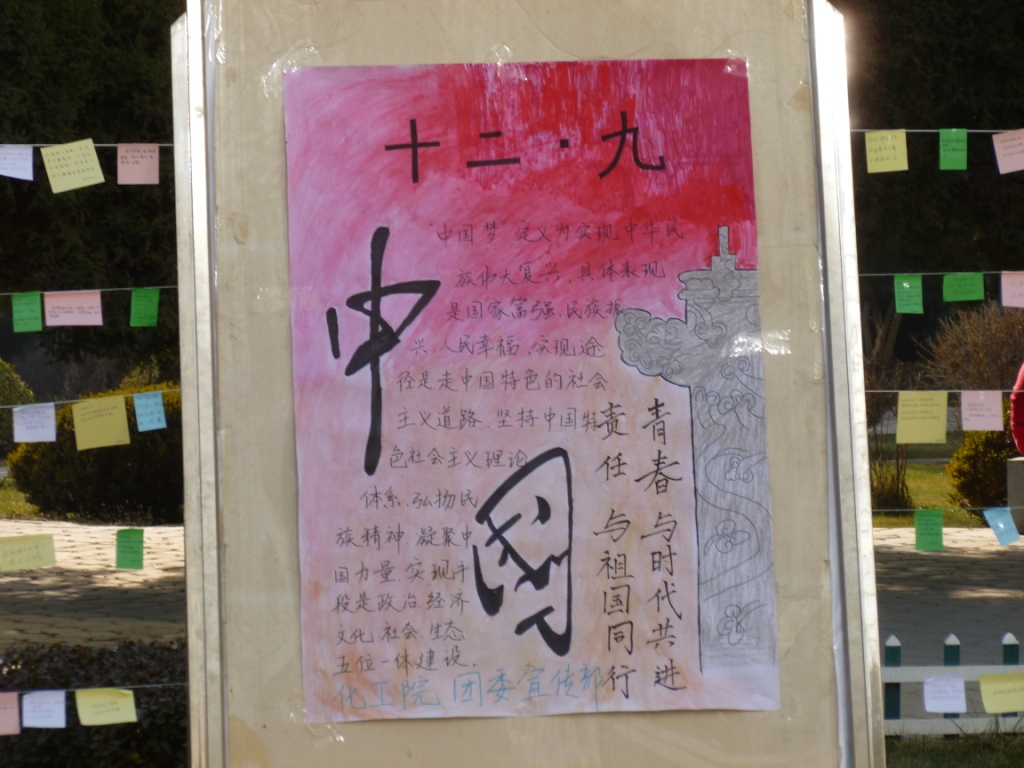 十二·九
中国
“中国梦”定义为实现中华民
族伟大复兴，具体表现
是国家富强、民族振
兴、人民幸福，实现途
径是走中国特色的社会
主义道路、坚持中国特
色社会主义理论
体系、弘扬民
族精神、凝聚中
国力量，实现手
段是政治、经济
文化、社会、生态
五位一体建设．
青春与时代共进
责任与祖国同行
化工院 团委宣传部